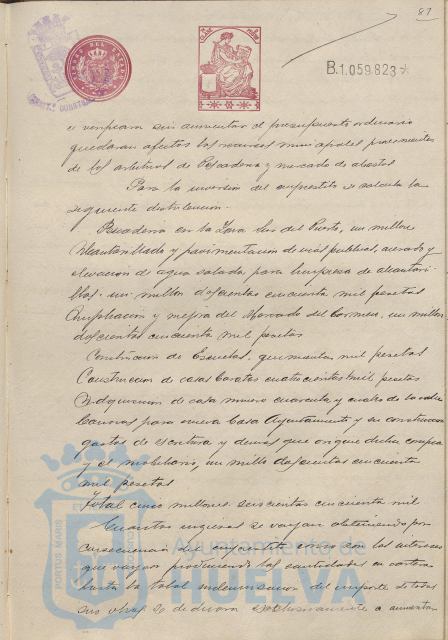 87
B.1.059.823
se verificara sin aumentar el presupuesto ordinario
quedaran afectos los recursos municipales procedentes
de los arbitrios de Pescaderia y mercado de abastos
Para la inversión del emprestito se calcula la
siguiente distribucion.
Pescaderia en la Zona Sur del Puerto, un millon
Alcantarillado y pavimentacion de vias publicas, acerado y
elevación de agua salada para limpieza de alcantari-
llas. un millon doscientas cincuenta mil pesetas
Ampliación y mejora del Mercado del Carmen, un millon
doscientas cincuenta mil pesetas
Construccion de Escuelas, quinientas mil pesetas
Construccion de casas baratas cuatrocientas mil pesetas
Adquisicion de casa numero cuarenta y cuatro de la calle
Canovas para nueva Casa Ayuntamiento y su construccion
gastos de escritura y demas que origine dicha compra
y el mobiliario, un millon doscientas cincuenta
mil pesetas
Total cinco millones seiscientas cincuenta mil
Cuantos ingresos se vayan obteniendo por
consecuencia del emprestito asi como los intereses
que vayan produciendo las cantidades en cartera
hasta la total del importe de todas
sus obras se exclusivamente a aumentar
Ayuntamiento de
HUELVA
PORTUS MARIS